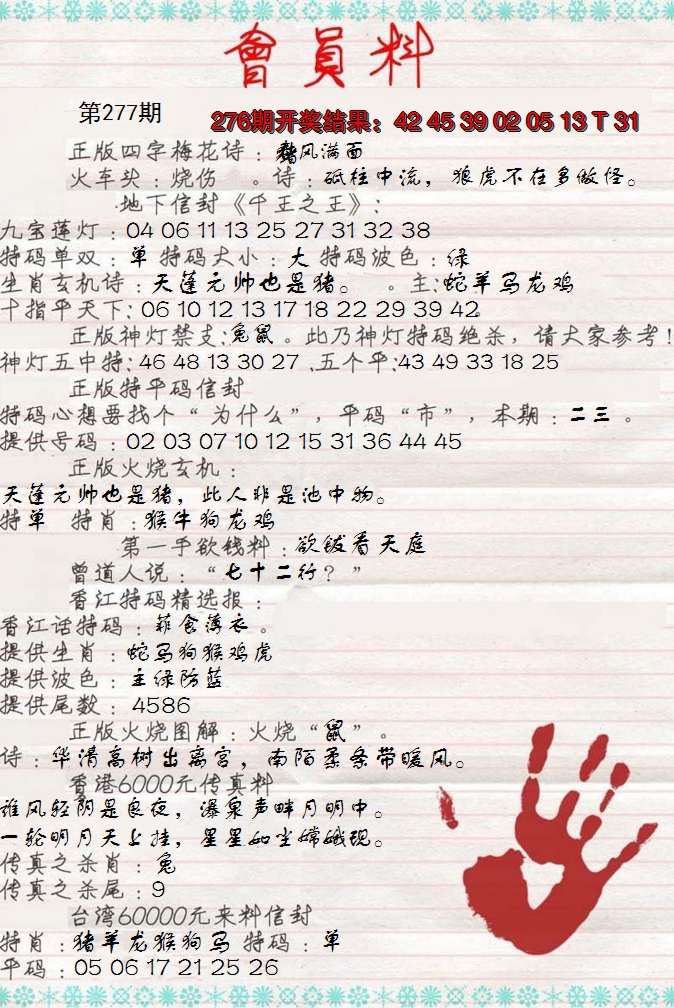 會員料
第277期
276期开奖结果：42 45 39 02 05 13 T 31
正版四字梅花诗：风满面
火车头：烧伤 。诗：砥柱中流，狼虎不在多做怪。
地下信封《千王之王》：
九宝莲灯：04 06 11 13 25 27 31 32 38
特码单双：单 特码大小：大 特码波色：绿
生肖玄机诗：天蓬元帅也是猪。 。主:蛇羊马龙鸡
十指平天下: 06 10 12 13 17 18 22 29 39 42
正版神灯禁支:兔鼠。此乃神灯特码绝杀，请大家参考！
神灯五中特: 46 48 13 30 27 .五个平:43 49 33 18 25
正版特平码信封
特码心想要找个“为什么”，平码“市”，本期：二三 。
提供号码：02 03 07 10 12 15 31 36 44 45
正版火烧玄机：
天蓬元帅也是猪，此人非是池中物。
特单 特肖：猴牛狗龙鸡
第一手欲钱料：欲钱看天庭
曾道人说：“七十二行？”
香江特码精选报：
香江话特码：菲食薄衣。
提供生肖：蛇马狗猴鸡虎
提供波色：主绿防蓝
提供尾数：4586
正版火烧图解：火烧“鼠”。
诗：华清高树出离宫，南陌柔条带暖风。
香港6000元传真料
谁风轻阴是良夜，瀑泉声畔月明中。
一轮明月天上挂，星星如尘嫦娥现。
传真之杀肖：兔
传真之杀尾：9
台湾60000元来料信封
特肖:猪羊龙猴狗马 特码：单
平码：05 06 17 21 25 26